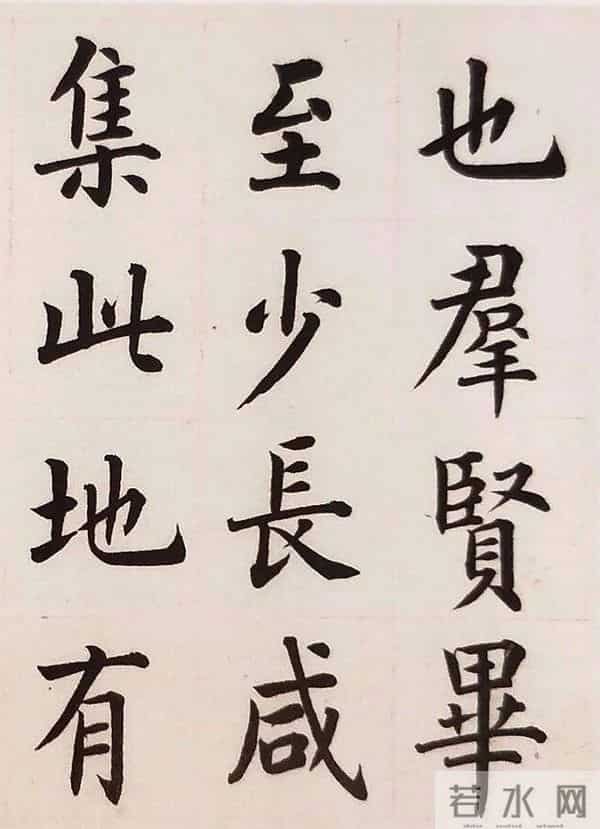 也羣賢畢
至少長咸
集此地有
若水网